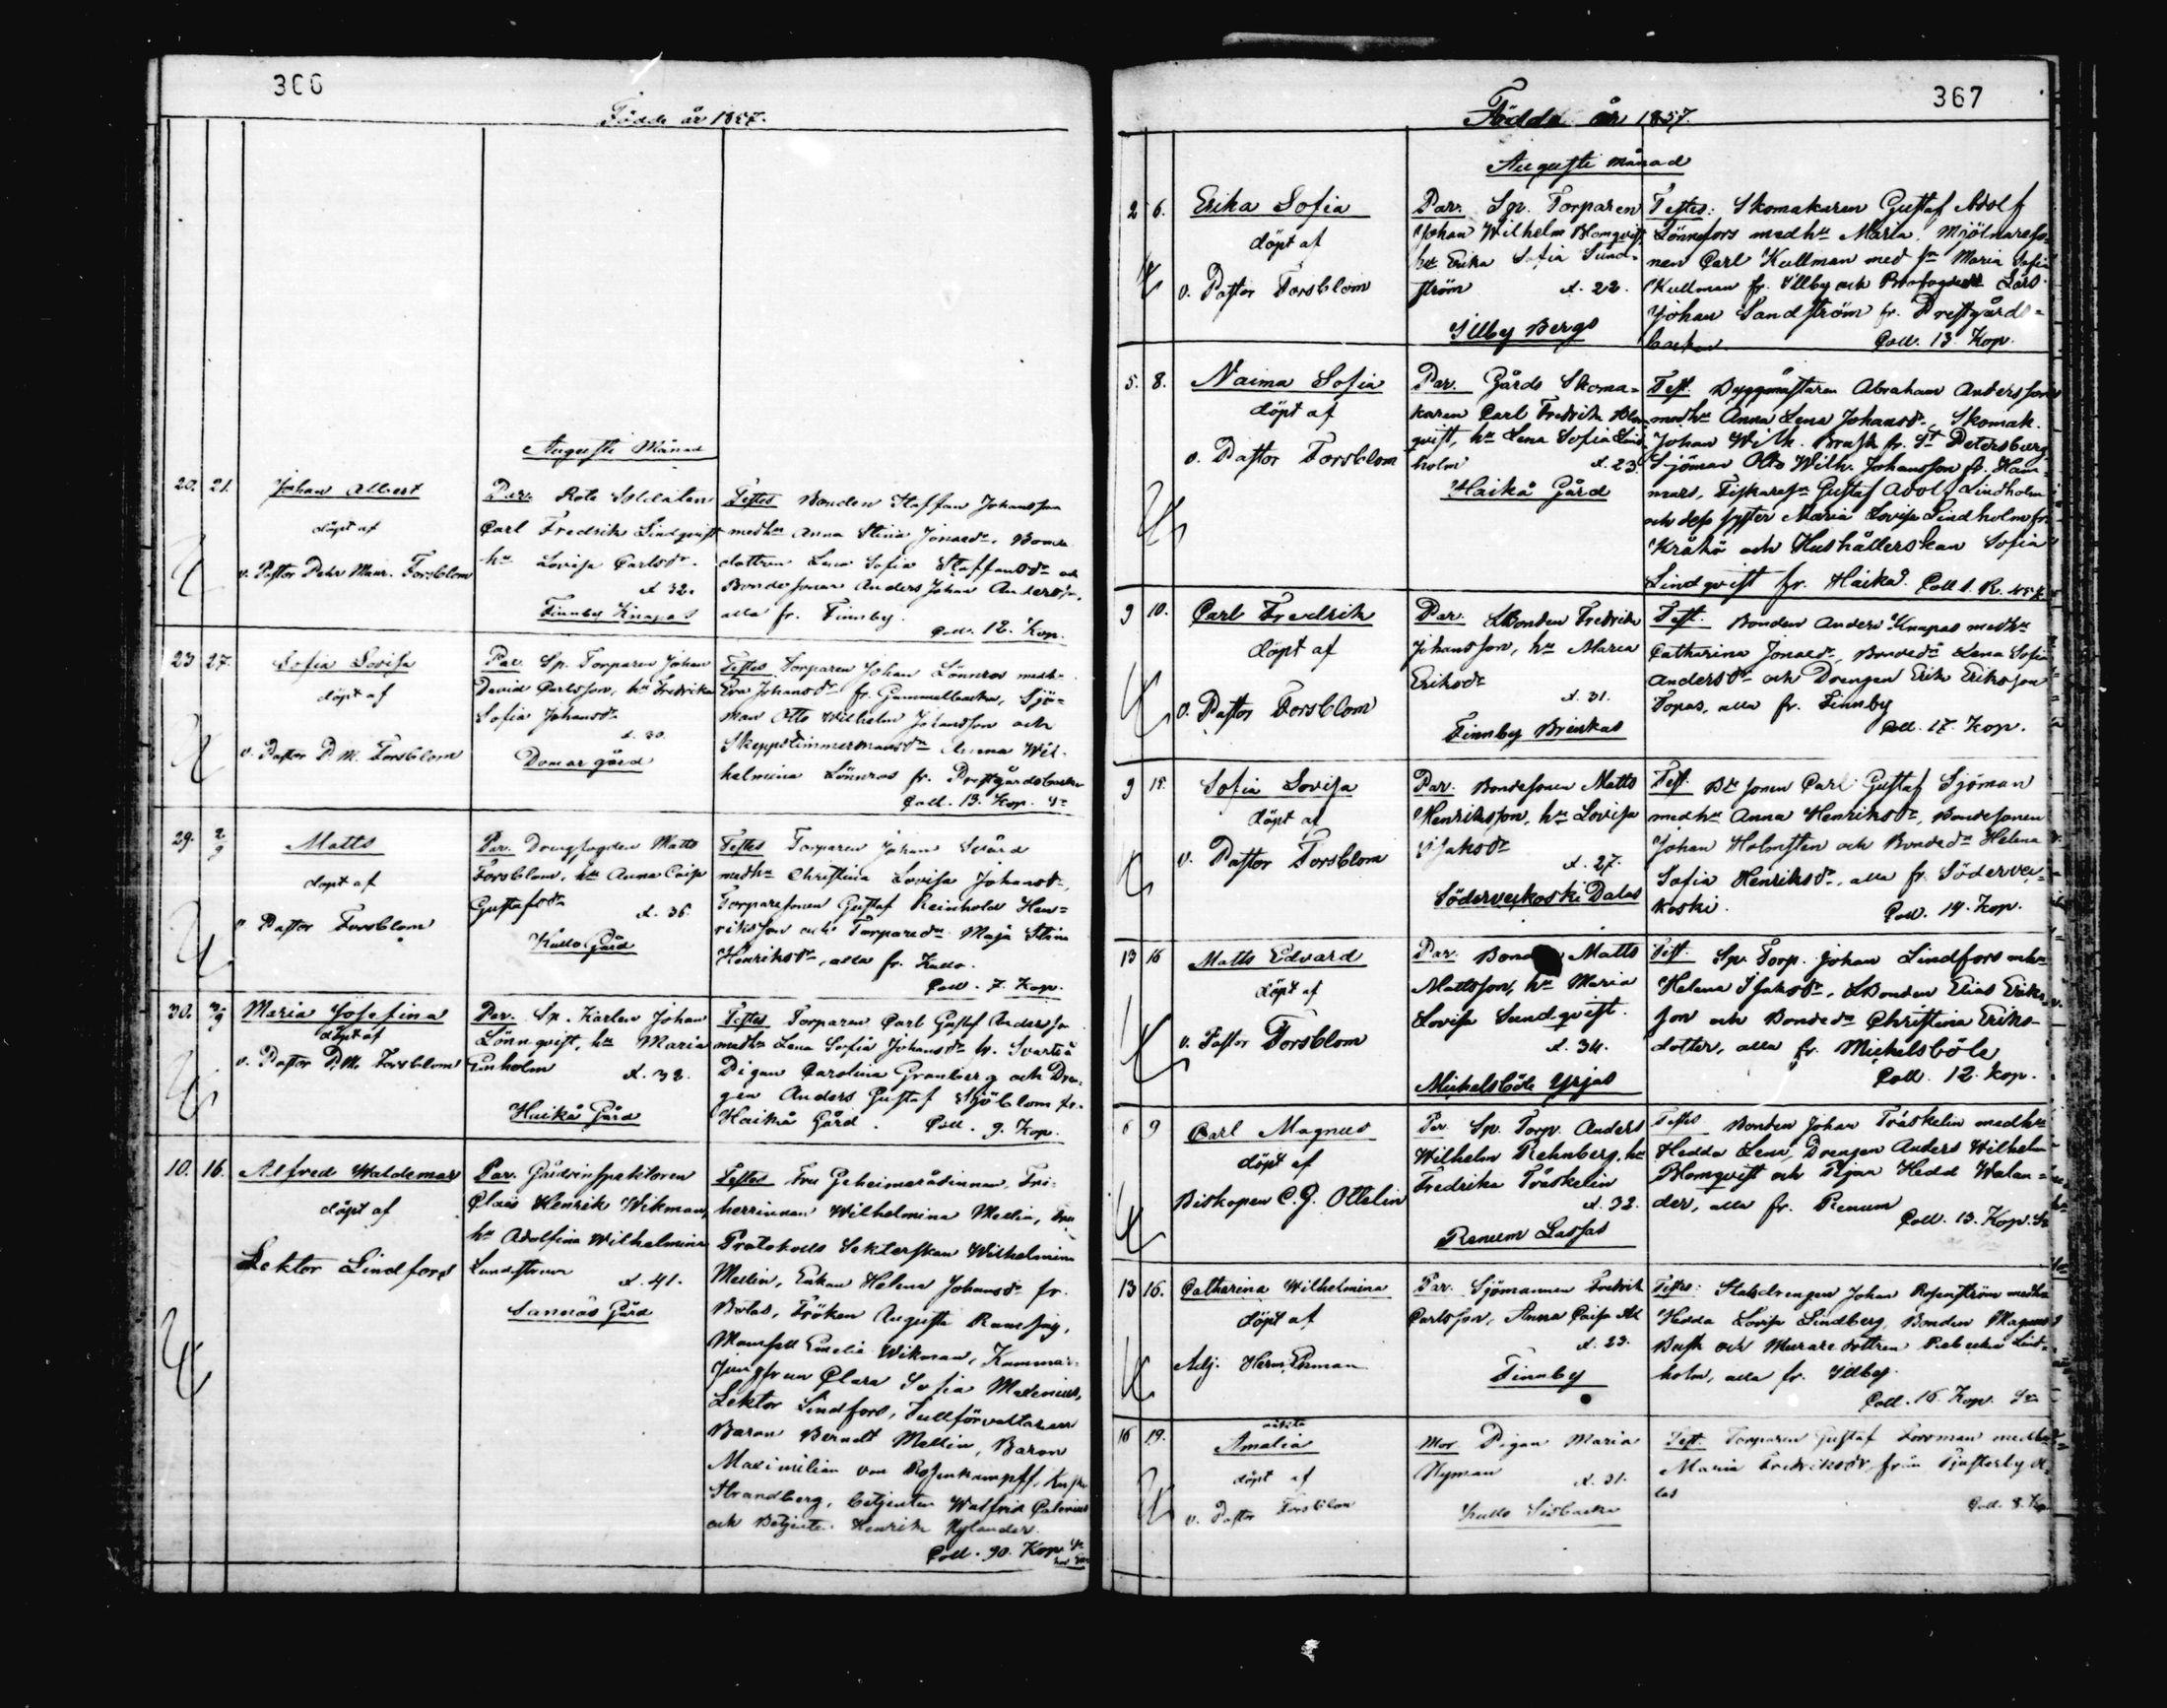 366
Födde år 1857.
Augusti Månad
20. 21. Johan Albert
döpt af
v. Pastor Pehr Maur. Forsblom
Par. Rote Soldaten
Carl Fredrik Lindqvist
hu Lovisa Carlsdr
ä. 32.
Finnby Knapas
Testes Bonden Staffan Johansson
medhu Anna Stina Jonaedr, Bonde
dottren Lena Sofia Staffansdr och
Bondesonen Anders Johan Anderss.
alla fr. Finnby.
Coll. 12. Kop.
23 27. Sofia Lovisa
döpt af
v. Pastor P. M. Forsblom
Par. Sp. Torparen Johan
David Carlsson, hu Fredrika
Sofia Johansdr
ä. 30.
Domargård
Testes Torparen Johan Lönnros medh
Eva Johansdr fr. Gammelbacka, Sjö=
man Otto Wilhelm Johansson och
Skeppstimmermansdr Anna Wil-
helmina Lönnros fr. Prestgårdsbacken
Coll. 13. Kop. Sr
29. 2/9 Matts
döpt af
v Pastor Forsblom
Par. Drengfogden Matts
Forsblom, hu Anna Caisa
Gustafsdr
ä. 36.
Kullo Gård
Testes Torparen Johan Svärd
medhu Christina Lovisa Johansdr,
Torparesonen Gustaf Reinhold Hen=
riksson och Torparedr Maja Stina
Henriksdr, alla fr. Kullo.
Coll. 7. Kop.
30. 3/9 Maria Josefina
döpt af
v. Pastor P. M. Forsblom
Par. Sp. Karlen Johan
Lönnqvist, hu Maria
Enholm
ä. 32.
Haikå Gård
Testes Torparen Carl Gustaf Andersson
medhu Lena Sofia Johansdr fr. Svartså
Pigan Carolina Granberg och Dren=
gen Anders Gustaf Sjöblom fr.
Haikå Gård. Coll. 9. Kop.
10. 16. Alfred Waldemar
döpt af
Lektor Lindfors
Par. Gårdsinspektoren
Claës Henrik Wikman,
hu Adolfina Wilhelmina
Lundstrum
ä. 41.
Sannäs Gård
Testes Fru Geheimerådinnan, Fri=
herrinnan Wilhelmina Mellin, Fru
Protokolls Sekterskan Wilhelmina
Mellin, Enkan Helena Johansdr fr.
Botas, Fröken Augusta Ramsay,
Mamsell Emelia Wikman, Kammar=
jungfrun Clara Sofia Malenius,
Lektor Lindfors, Tullförvaltaren
Baron Berndt Mellin, Baron
Maximilian von Rosenkampff,
Strandberg, betjenten Walfrid
och Betjente. Henrik Nylander.
Coll. 90. Kop Sr
367
Födda år 1857.
Augusti månad
2 6. Erika Sofia
döpt af
v. Pastor Forsblom
Par. Sp. Torparen
Johan Wilhelm Blomqvist,
hu Erika Sofia Sund=
ström ä. 22.
Illby Bergs
Testes: Skomakaren Gustaf Adolf
Lönnefors medhu Maria, Mjölnareso=
nen Carl Kullman med sr Maria Sofia
Kullman fr. Illby och Brofogden Lars
Johan Sandström fr. Prestgårds=
backen Coll. 13. Kop.
5. 8. Naima Sofia
döpt af
v. Pastor Forsblom
Par. Gårds Skoma=
karen Carl Fredrik Blom
qvist, hu Lena Sofia Lind
holm ä. 23.
Haikå Gård
Test. Byggmästaren Abraham Andersson
medhu Anna Lena Johansdr, Skomak.
Johan Wilh. Brusk fr. St Petersburg
Sjöman Otto Wilh. Johansson fr. Ham=
mars, Fiskaresn Gustaf Adolf Lindholm
och dess syster Maria Lovisa Lindholm fr.
Kråkö och Hushållerskan Sofia
Lindqvist fr. Haikå. Coll 1. R. 45 k.
9 10. Carl Fredrik
döpt af
v. Pastor Forsblom
Par. Bonden Fredrik
Johansson, hu Maria
Eriksdr
ä. 31.
Finnby Brinkas
Test. Bonden Anders Knapas medhu
Catharina Jonaedr, Bondedr Lena Sofia
Andersdr och Drengen Erik Eriksson
Topas, alla fr. Finnby
Coll. 17. Kop.
9 15. Sofia Lovisa
döpt af
v. Pastor Forsblom
Par. Bondesonen Matts
Henriksson, hu Lovisa
Isaksdr
ä. 27.
Söderveckoski Dalas
Test. Bde sonen Carl Gustaf Sjöman
medhu Anna Henriksdr, Bondesonen
Johan Holmsten och Bondedr Helena
Sofia Henriksdr, alla fr. Södervec=
koski. Coll. 14. Kop.
13 16 Matts Edvard
döpt af
v. Pastor Forsblom
Par. Bonden Matts
Mattsson, hu Maria
Lovisa Sundqvist.
ä. 34.
Mickelsböle Yrjas
Test. Sp. Torp. Johan Lindfors mhu
Helena Isaksdr, Bonden Elias Eriks-
son och Bondedr Christina Eriks-
dotter, alla fr. Mickelsböle
Coll. 12. Kop.
6 9 Carl Magnus
döpt af
Biskopen C. G. Ottelin
Par. Sp. Torp. Anders
Wilhelm Rehnberg, hu
Fredrika Träskelin
ä. 32.
Renum Lassas
Testes Bonden Johan Träskelin medhu
Hedda Lena, Drengen Anders Wilhelm
Blomqvist och Pigan Hedd Welan=
der, alla fr. Renum
Coll. 13. Kop. Sr
13 16. Catharina Wilhelmina
döpt af
Adj. Herm. Öhman
Par. Sjömannen Fredrik
Carlsson, Anna Caisa
ä. 23.
Finnby
Testes: Stalldrengen Johan Rosenström medhu
Hedda Lovisa Lindberg, Bonden Magnus
Busk och Murare dottren Rebecka Lind=
holm, alla fr. Illby.
Coll. 16. Kop. Sr
16 19. oäkta
Amalia
döpt af
v. Pastor Forsblom
Mor Pigan Maria
Nyman ä. 31.
Kullo Sisbacka
Test. Torparen Gustaf Forsman medhu
Maria Fredriksdr från
Coll. 8. Kop